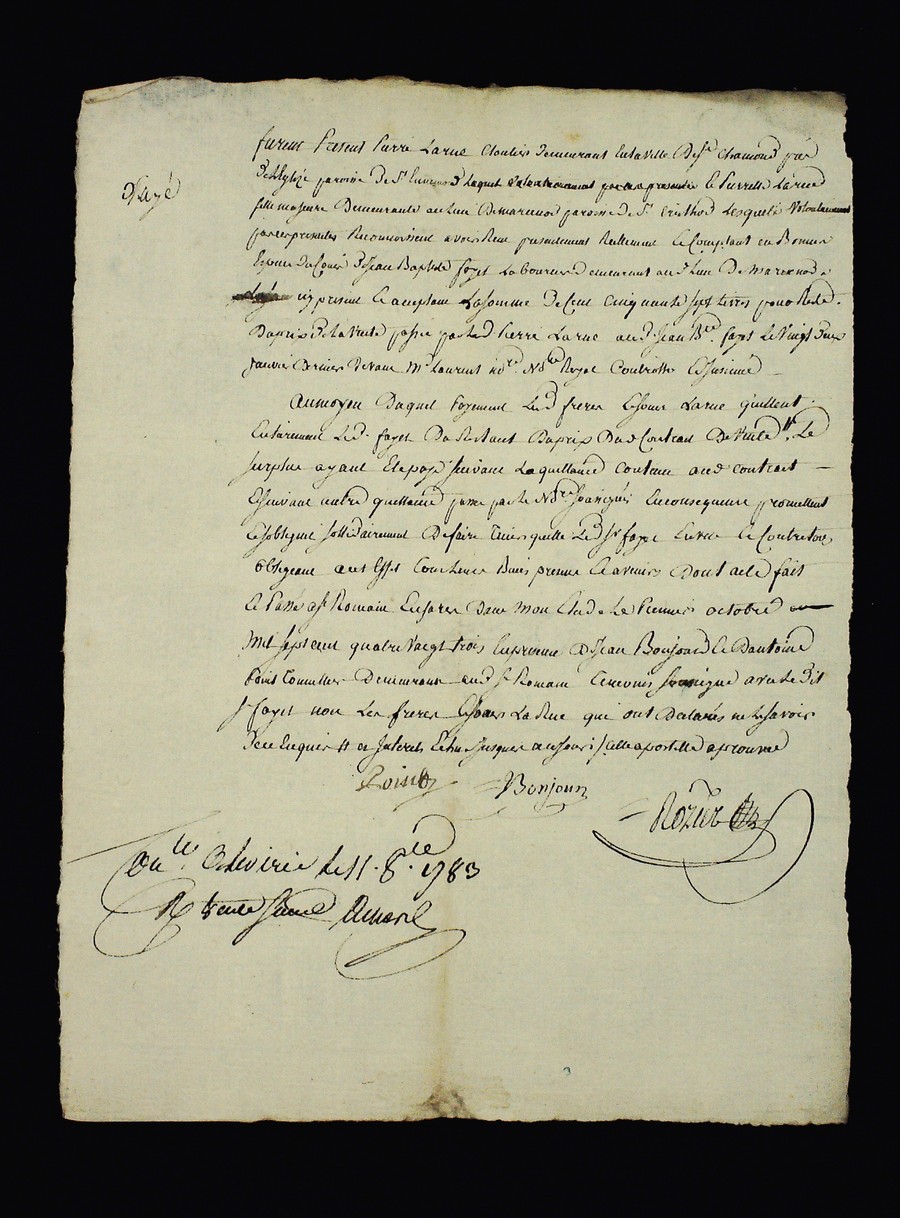 furent Present Pierre Larue Cloutier Demeurant En la ville De St. Chamond prés
De L'Eglize paroisse De St. Ennemond Laquel & Pierrette Larue
fille majeure Demeurante au lieu De marcenod paroisse de St. Cristhot Lesquels Volontairement
par ces presentes Reconnoissent avoir Reçu presentement Reellement & Comptant en Bonnes
Especes du Cours D Jean Baptiste fayet Laboureur demeurant au d. Lieu De Marcenod
icy present & acceptant La somme de Cent Cinquante Sept Livres pour Reste
Du prix De la Vente passée par led Pierre Larue aud. Jean Bte. fayet Le Vingt Deux
Janvier Dernier Devant Me Laurent Nore. Royal Controllé & Insinué
Au moyen Duquel Payement Led freres & soeur Larue quittent
Entierement Led. fayet Du Restant Du prix Dud Contrat De Vente #. Le
surplus ayant Eté payé suivant La quittance Contenue aud contrat
& suivant autre quittance passée par le Nore. Soussigné En consequence promettent
& s'obligent sollidairement De faire tenir quitte Led Sr fayet Envers & Contre tous
Obligeant a cet Effet tous Leurs Biens presents & avenirs Dont acte fait
& Passé a St Romain En Jarez Dans mon Etude Le Premier octobre
Mil Sept cent quatre Vingt trois En presence D Jean Bonjour & D antoine
Point Demeurant aud St. Romain temoins Soussignés avec Le Dit
Sr. fayet non Les freres & soeur La Rue qui ont Declarés ne Le savoir
De ce Enquis # et Interets Echus Jusques a ce jour / Cette apostille approuvée
Point
Bonjour
Rozier
fayé
Conlé. a Rive de Le 11. 8.bre 1783